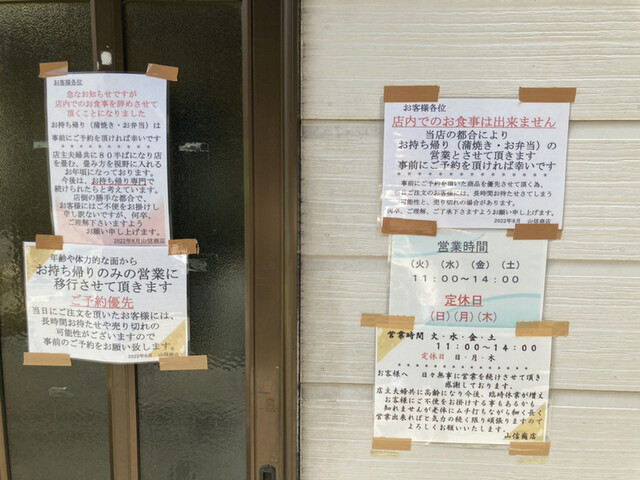 お客様各位
急なお知らせですが
店内でのお食事を辞めさせて
頂くことになりました
お持ち帰り（蒲焼き・お弁当）は
事前にご予約を頂ければ幸いです
＊＊＊＊＊＊＊＊＊＊＊＊＊＊＊＊
店主夫婦共に８０半ばになり店
を畳む、畳み方を視野に入れる
お年頃になっております。
今後は、お持ち帰り専門で
続けられたらと考えています。
店側の勝手な都合で、
お客様にはご不便をお掛けし
申し訳ないですが、何卒、
ご理解下さいますよう
お願い申し上げます。
2022年8月 山信商店
年齢や体力的な面から
お持ち帰りのみの営業に
移行させて頂きます
ご予約優先
当日にご注文を頂いたお客様には、
長時間お待たせや売り切れの
可能性がございますので
事前のご予約をお願い致します。
2022年8月 山信商店
お客様各位
店内でのお食事は出来ません
当店の都合により
お持ち帰り（蒲焼き・お弁当）の
営業とさせて頂きます
事前にご予約を頂ければ幸いです
＊＊＊＊＊＊＊＊＊＊＊＊＊＊＊＊
事前にご予約を頂いた商品を優先させて頂く為、
当日ご注文のお客様には、長時間お待たせさせてしまう
可能性と、売り切れの場合があります。
何卒、ご理解、ご了承下さますようお願い申し上げます。
2022年8月 山信商店
営業時間
（火）（水）（金）（土）
１１：００～１４：００
定休日
（日）（月）（木）
営業時間 火・水・金・土
１１：００～１４：００
定休日 日・月・木
＊＊＊＊＊＊＊＊＊＊＊＊＊＊＊＊
お客様へ 日々無事に営業を続けさせて頂き
感謝しております。
店主夫婦共に高齢になり今後、臨時休業が増え
お客様にご不便をお掛けする事もあるかも
知れませんが老体にムチ打ちながら細く長く
営業出来ればと気力の続く限り頑張りますので
よろしくお願いいたします。
山信商店